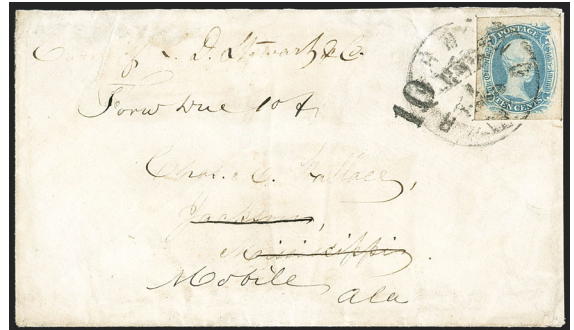 Care of L. D. Stewart & Co.
Forw Due 10 ¢
10
POSTAGE
TEN CENTS
Chas. C. Wallace,
Jackson,
Mississippi
Mobile
Ala